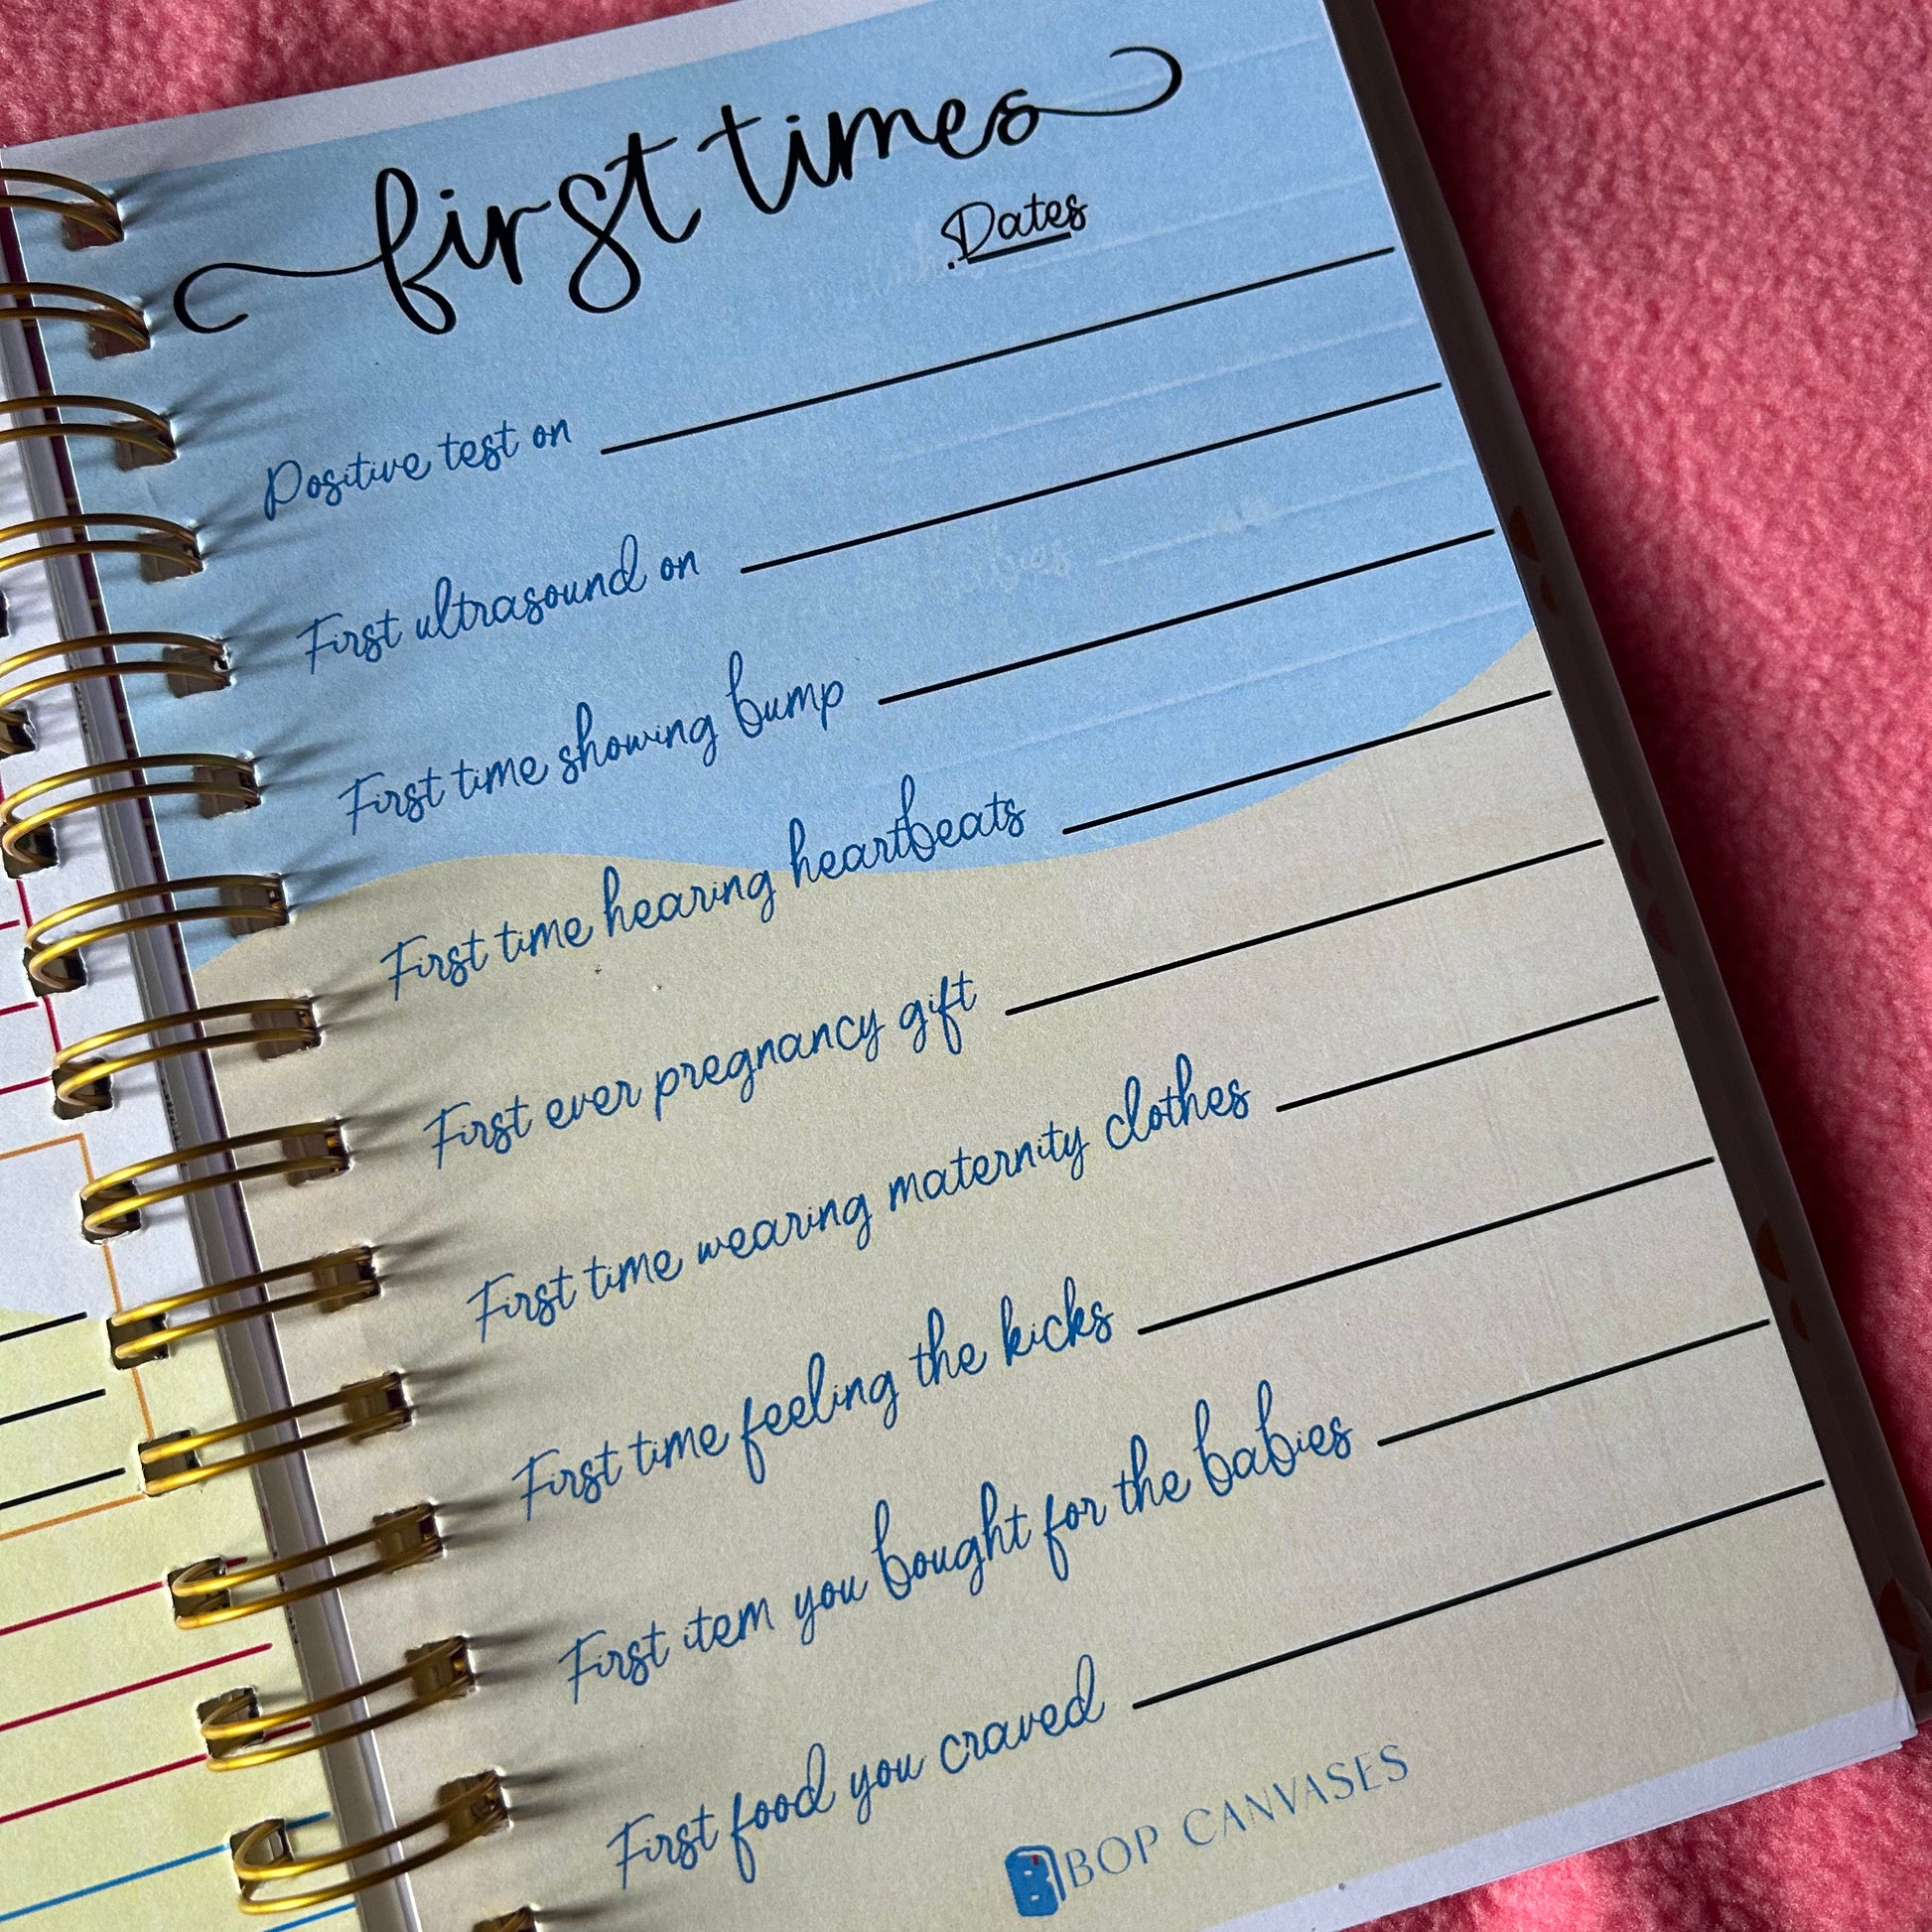 first times
Dates
Positive test on
First ultrasound on
First time showing bump
First time hearing heartbeats
First ever pregnancy gift
First time wearing maternity clothes
First time feeling the kicks
First item you bought for the babies
First food you craved
BOP CANVASES